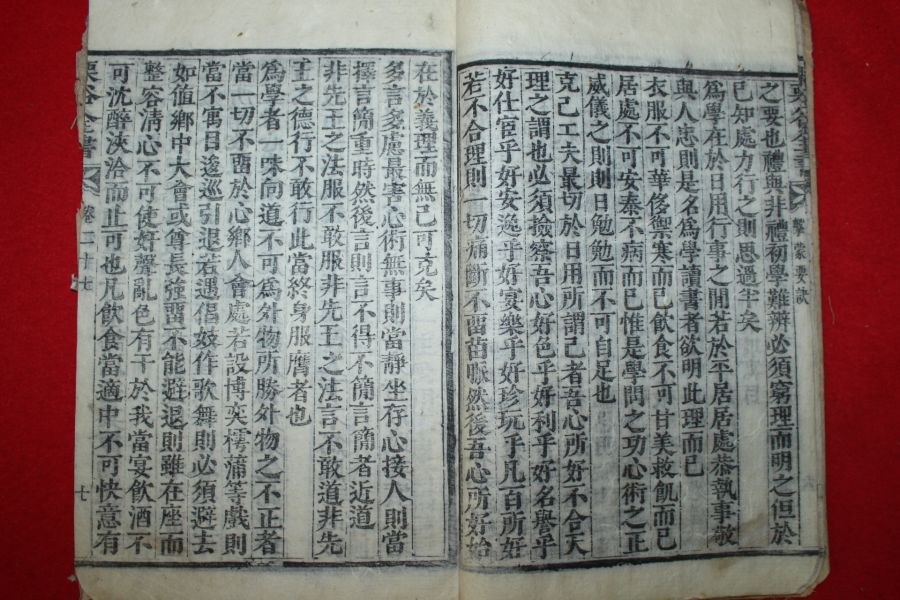 栗谷全書
擊蒙要訣
之要也禮與非禮初學難辨必須窮理而明之但於
已知處力行之則思過半矣
爲學在於日用行事之間若於平居居處恭執事敬
與人忠則是名爲學讀書者欲明此理而已
衣服不可華侈禦寒而已飮食不可甘美救飢而已
居處不可安泰不病而已惟是學問之功心術之正
威儀之則則日勉勉而不可自足也
克己工夫最切於日用所謂己者吾心所好不合天
理之謂也必須撿察吾心好色乎好利乎好名譽乎
好仕宦乎好安逸乎好宴樂乎好珍玩乎凡百所好
若不合理則一切痛斷不畱苗脈然後吾心所好始
在於義理而無己可克矣
多言多慮最害心術無事則當靜坐存心接人則當
擇言簡重時然後言則言不得不簡言簡者近道
非先王之法服不敢服非先王之法言不敢道非先
王之德行不敢行此當終身服膺者也
爲學者一味向道不可爲外物所勝外物之不正者
當一切不畱於心鄕人會處若設博奕樗蒲等戲則
當不寓目逡巡引退若遇倡妓作歌舞則必須避去
如値鄕中大會或尊長強畱不能避退則雖在座而
整容淸心不可使奸聲亂色有干於我當宴飮酒不
可沈醉浹洽而止可也凡飮食當適中不可快意有
栗谷全書
卷二十七
七